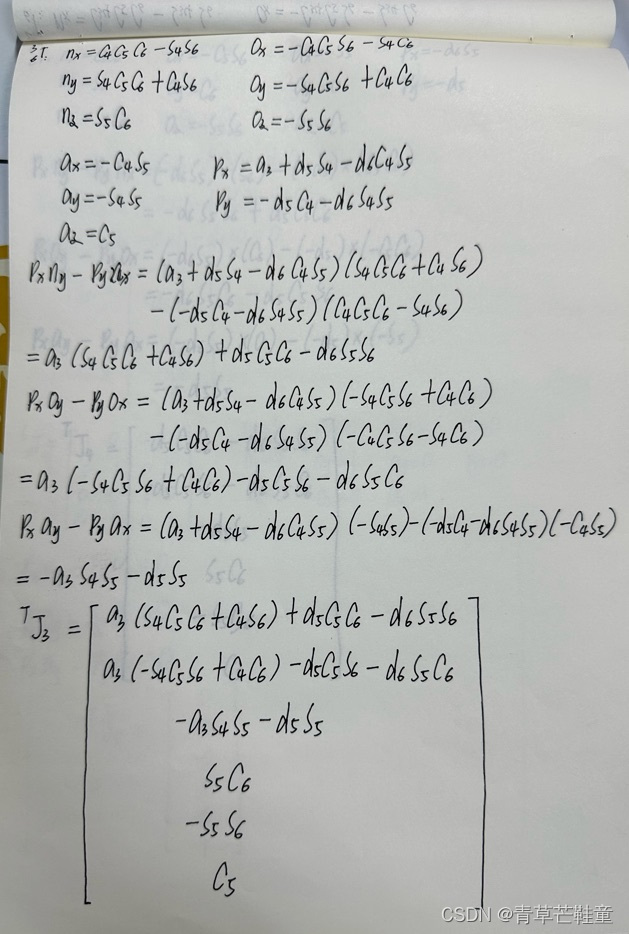 ³₆T: nx = C4C5C6 - S4S6 Ox = -C4C5S6 - S4C6
ny = S4C5C6 + C4S6 Oy = -S4C5S6 + C4C6
nz = S5C6 Oz = -S5S6
ax = -C4S5 Px = a3 + d5S4 - d6C4S5
ay = -S4S5 Py = -d5C4 - d6S4S5
az = C5
Pxny - Pynx = (a3 + d5S4 - d6C4S5)(S4C5C6 + C4S6)
-(-d5C4 - d6S4S5)(C4C5C6 - S4S6)
= a3(S4C5C6 + C4S6) + d5C5C6 - d6S5S6
PxOy - PyOx = (a3 + d5S4 - d6C4S5)(-S4C5S6 + C4C6)
-(-d5C4 - d6S4S5)(-C4C5S6 - S4C6)
= a3(-S4C5S6 + C4C6) - d5C5S6 - d6S5C6
Pxay - Pyax = (a3 + d5S4 - d6C4S5)(-S4S5) - (-d5C4 - d6S4S5)(-C4S5)
= -a3S4S5 - d5S5
ᵀJ3 = [ a3(S4C5C6 + C4S6) + d5C5C6 - d6S5S6
a3(-S4C5S6 + C4C6) - d5C5S6 - d6S5C6
-a3S4S5 - d5S5
S5C6
-S5S6
C5 ]
CSDN @青草芒鞋童